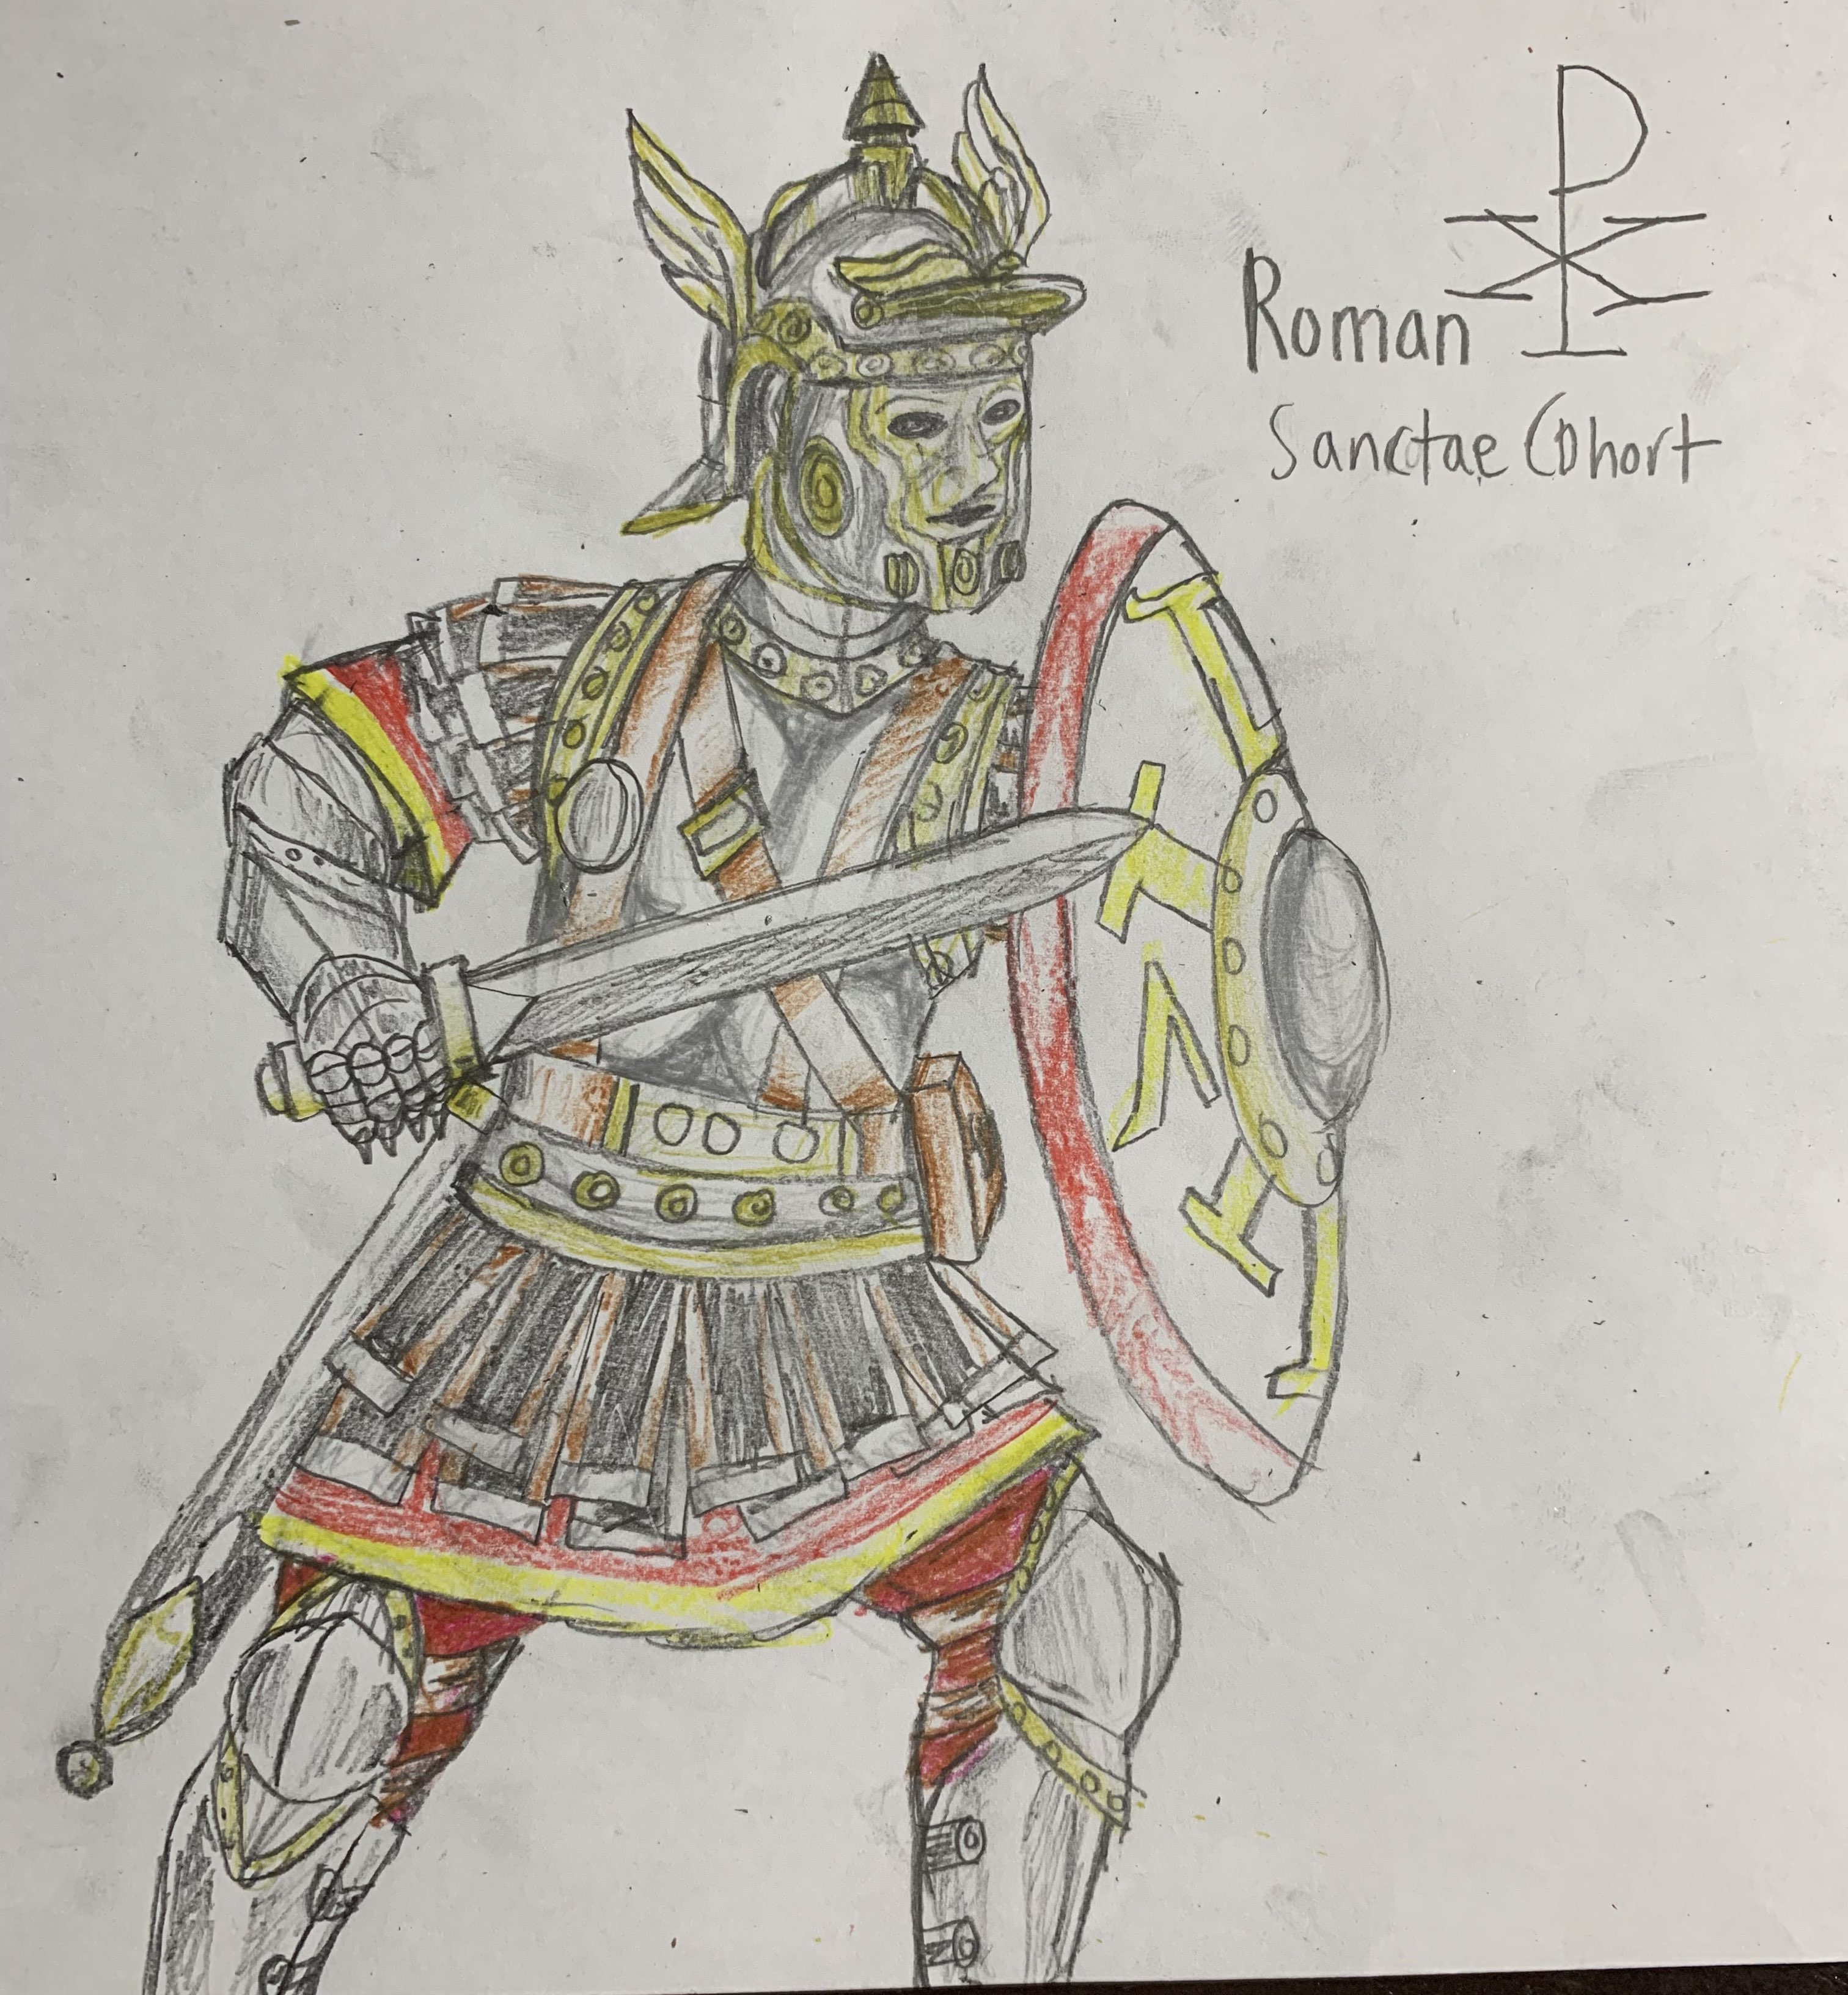 Roman
Sanctae Cohort